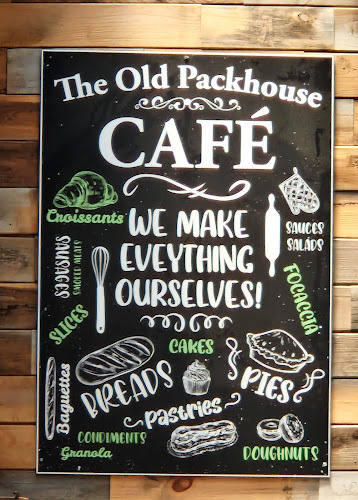 The Old Packhouse
CAFÉ
Croissants
WE MAKE
EVEYTHING
OURSELVES!
SAUCES
SALADS
SAUSAGES
SMOKED MEATS
FOCACCIA
SLICES
CAKES
Baguettes
BREADS
PIES
Pastries
CONDIMENTS
Granola
DOUGHNUTS